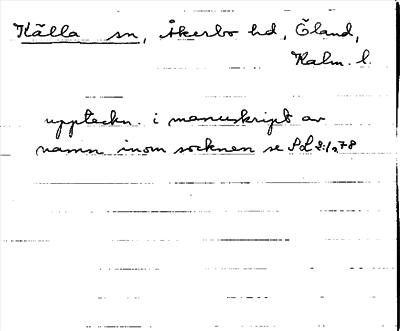 Källa sn, Åkerbo hd, Öland,
Kalm. l.
uppteckn. i manuskript av
namn inom socknen se